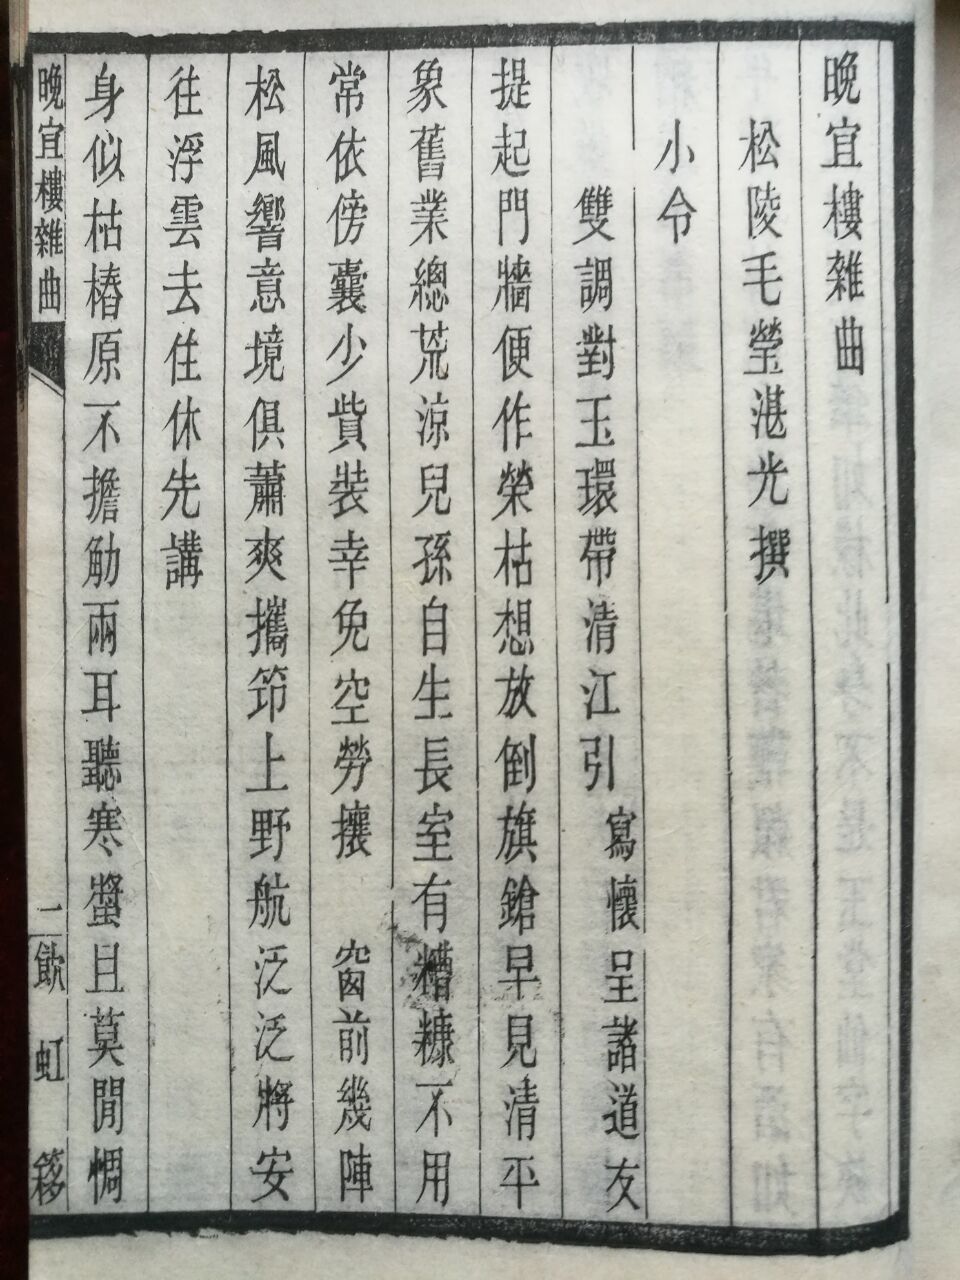 晚宜樓雜曲
松陵毛瑩湛光撰
小令
雙調對玉環帶清江引 寫懷呈諸道友
提起門牆便作榮枯想放倒旗鎗早見清平
象舊業總荒涼兒孫自生長室有糟糠不用
常依傍囊少貲裝幸免空勞攘 窗前幾陣
松風響意境俱蕭爽攜筇上野航泛泛將安
往浮雲去住休先講
身似枯樁原不擔觔兩耳聽寒螿且莫閒惆
晚宜樓雜曲 二 飲虹簃